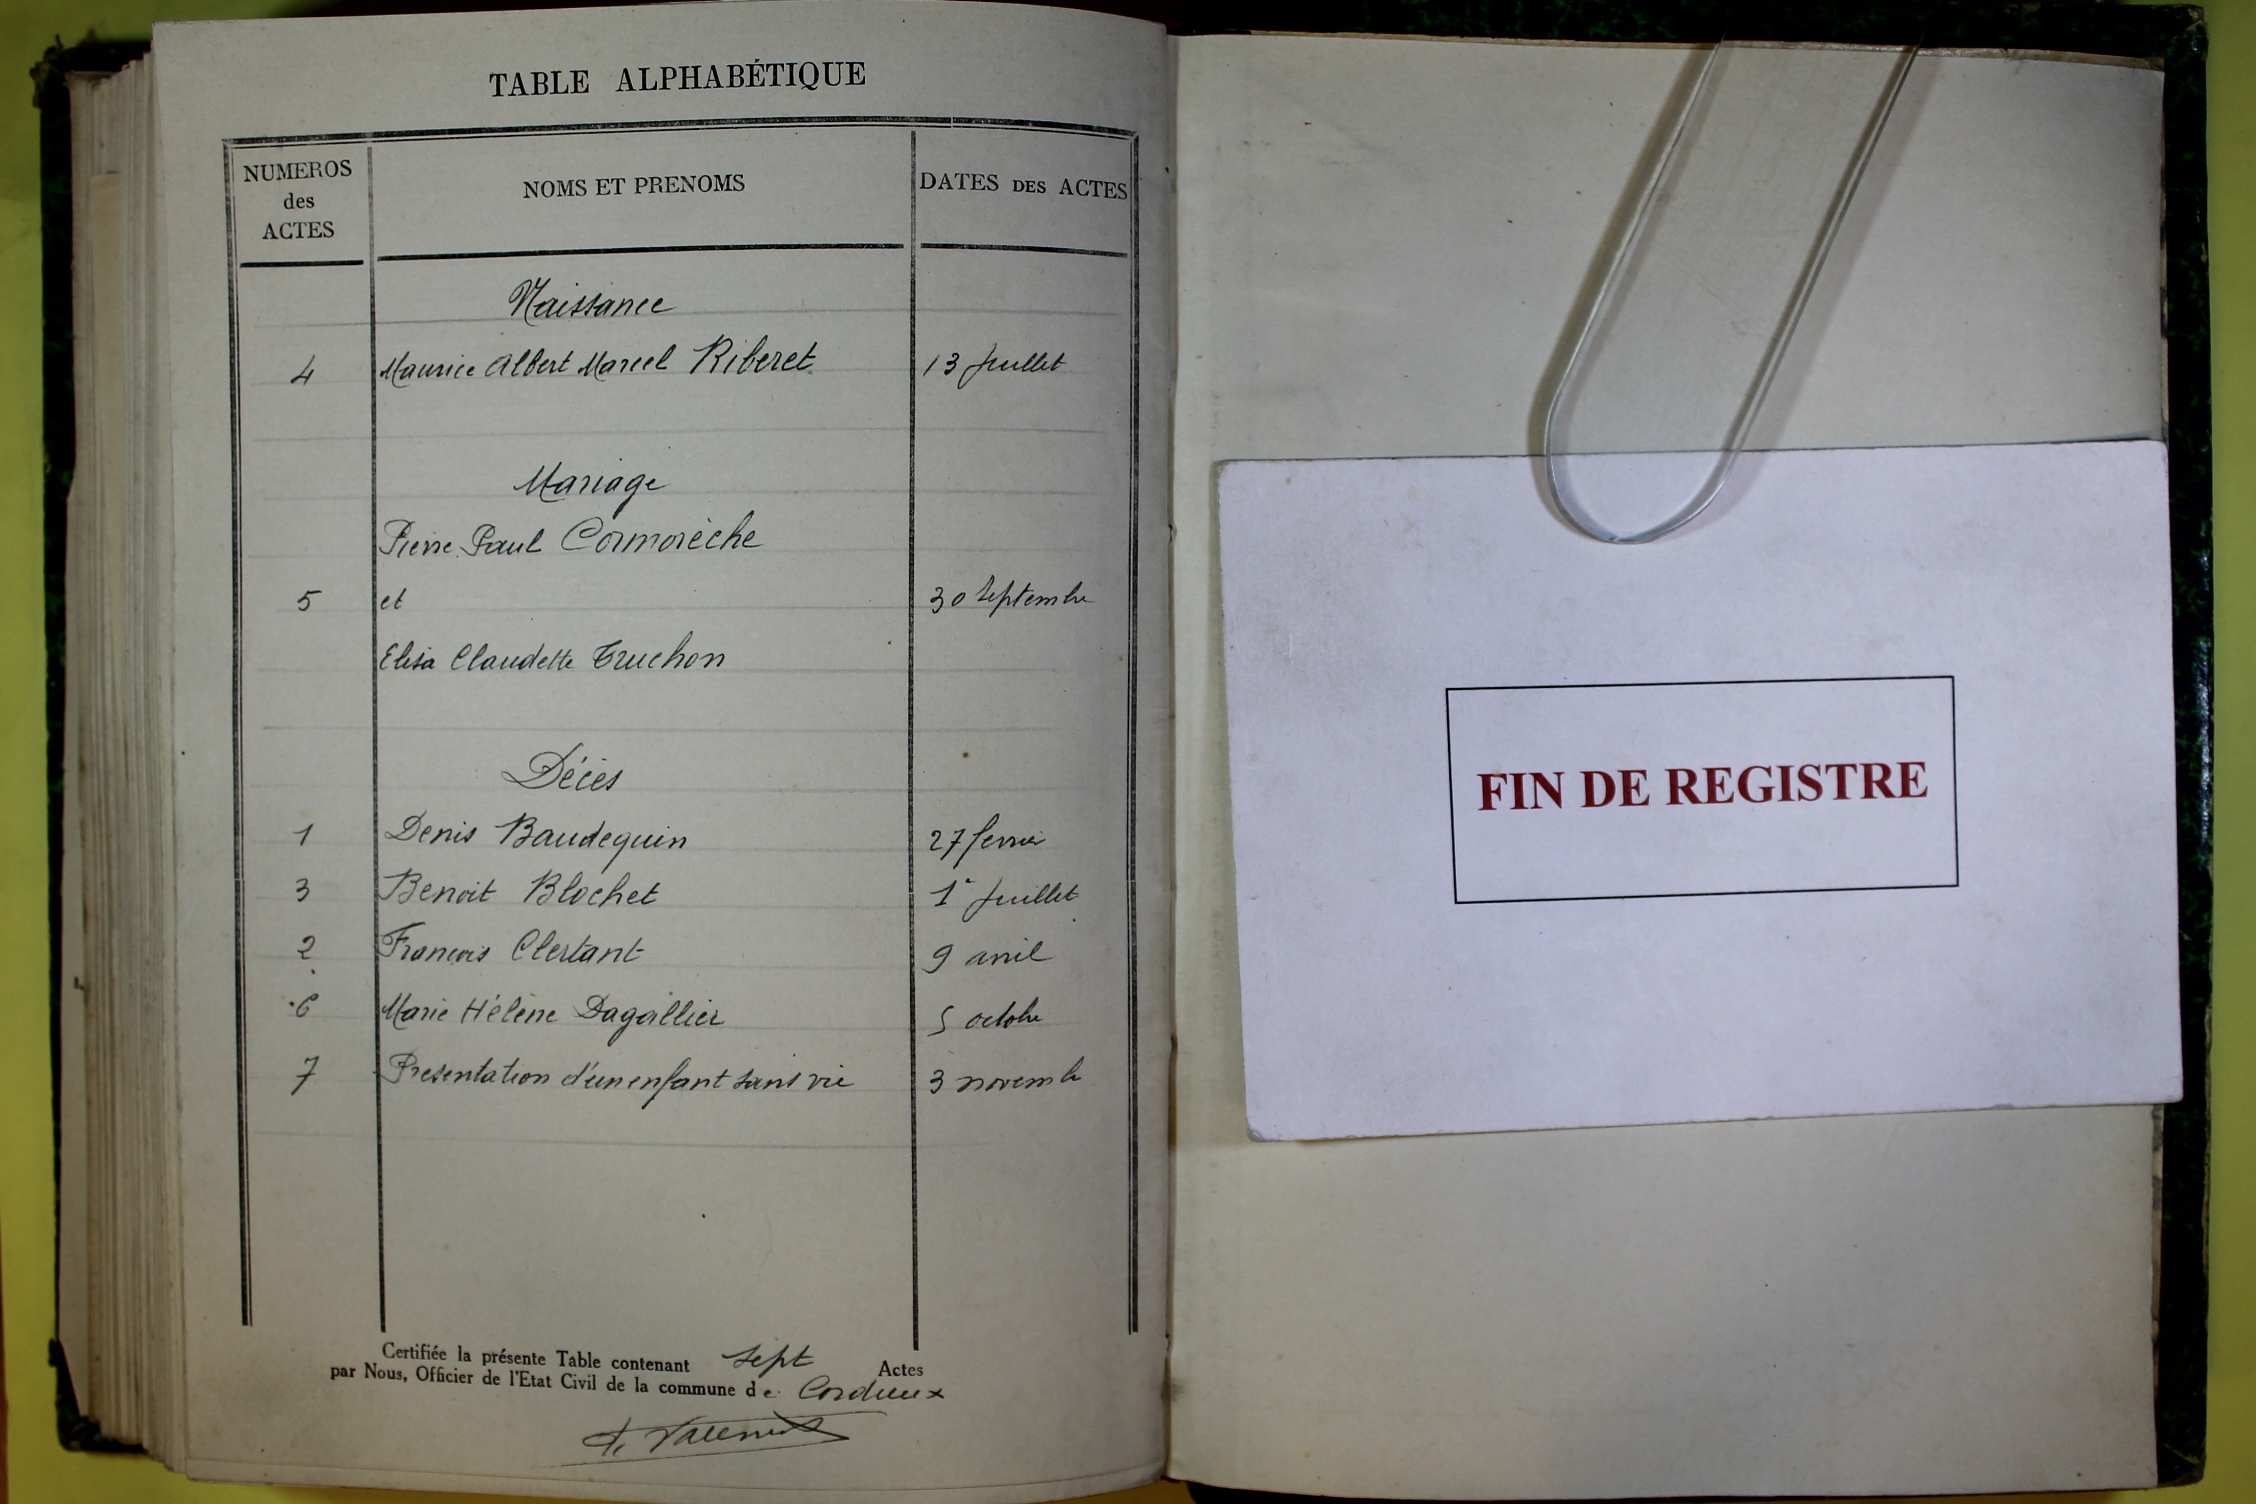 TABLE ALPHABÉTIQUE
NUMEROS des ACTES
NOMS ET PRENOMS
DATES DES ACTES
Naissance
4 Maurice Albert Marcel Riberet 13 Juillet
Mariage
Pierre Paul Cormorèche
5 et 30 Septembre
Elisa Claudette Truchon
Décès
1 Denis Baudequin 27 fevrier
3 Benoit Blochet 1er Juillet
2 François Clertant 9 avril
6 Marie Hélène Dagallier 5 octobre
7 Presentation d'un enfant sans vie 3 novembre
Certifiée la présente Table contenant sept Actes
par Nous, Officier de l'Etat Civil de la commune de Cordieux
FIN DE REGISTRE